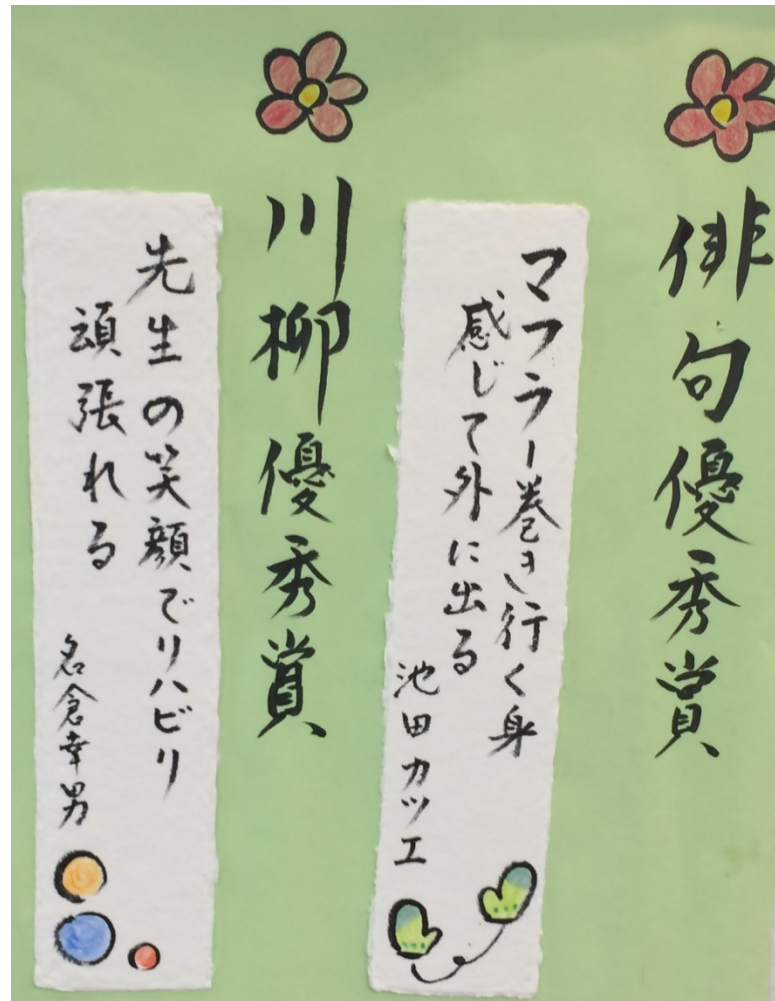 俳句優秀賞
マフラー巻き行く身
感じて外に出る
池田カツエ
川柳優秀賞
先生の笑顔でリハビリ
頑張れる
名倉幸男